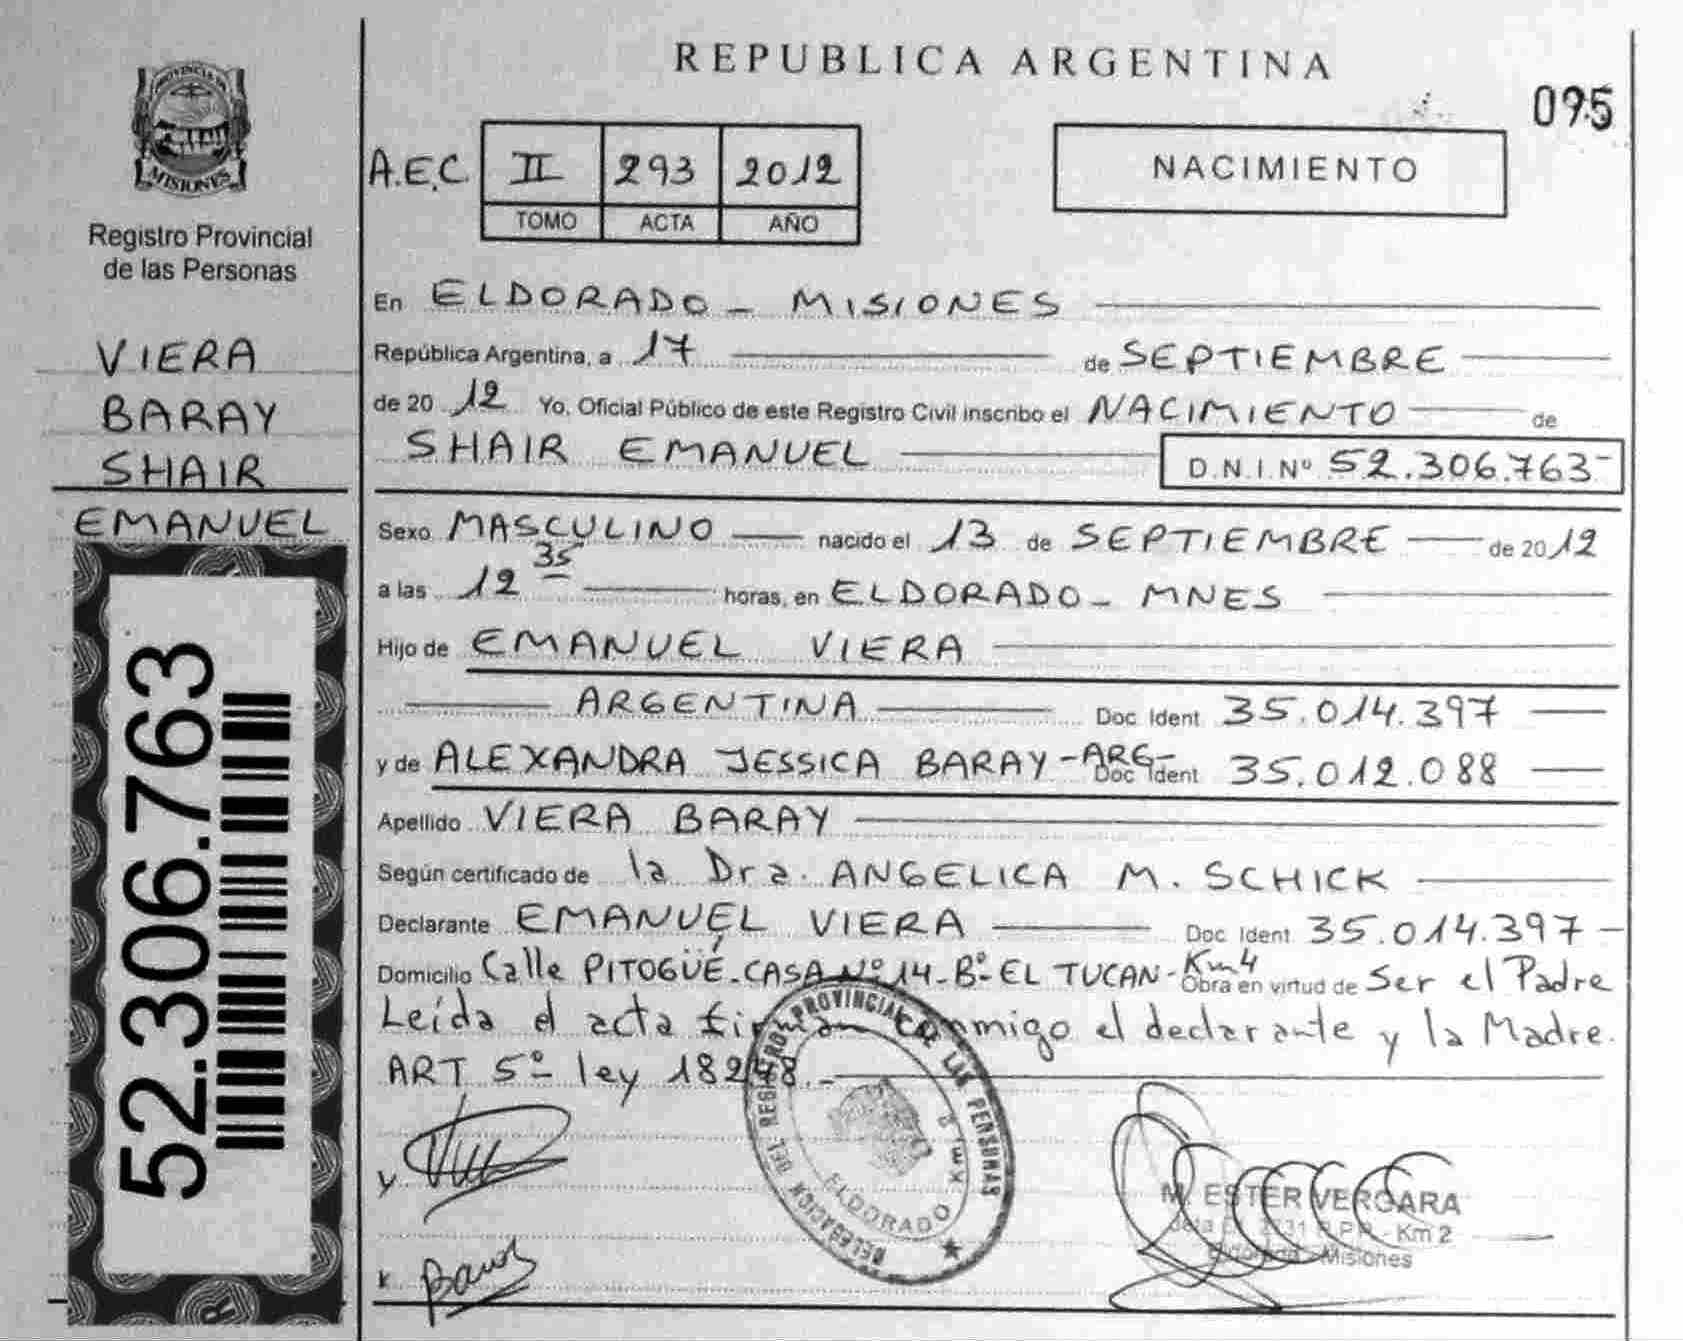 PROVINCIA DE
MISIONES
Registro Provincial
de las Personas
VIERA
BARAY
SHAIR
EMANUEL
52.306.763
REPUBLICA ARGENTINA
095
A.E.C II 293 2012
TOMO ACTA AÑO
NACIMIENTO
En ELDORADO - MISIONES
República Argentina, a 17 de SEPTIEMBRE
de 20 12 Yo, Oficial Público de este Registro Civil inscribo el NACIMIENTO de
SHAIR EMANUEL D.N.I.Nº 52.306.763-
Sexo MASCULINO nacido el 13 de SEPTIEMBRE de 2012
a las 12 35 horas, en ELDORADO - MNES
Hijo de EMANUEL VIERA
ARGENTINA Doc. Ident 35.014.397
y de ALEXANDRA JESSICA BARAY - ARG- Doc. Ident 35.012.088
Apellido VIERA BARAY
Según certificado de la Dra. ANGELICA M. SCHICK
Declarante EMANUEL VIERA Doc. Ident 35.014.397 -
Domicilio Calle PITOGÜÉ - CASA Nº 14 - Bº EL TUCAN - Km 4 Obra en virtud de Ser el Padre
Leída el acta firman conmigo el declarante y la Madre.
ART 5º ley 18248.-
DELEGACION DEL REGISTRO PROVINCIAL DE LAS PERSONAS
ELDORADO
M. ESTER VERGARA
R.P.P. - Km 2
Eldorado - Misiones